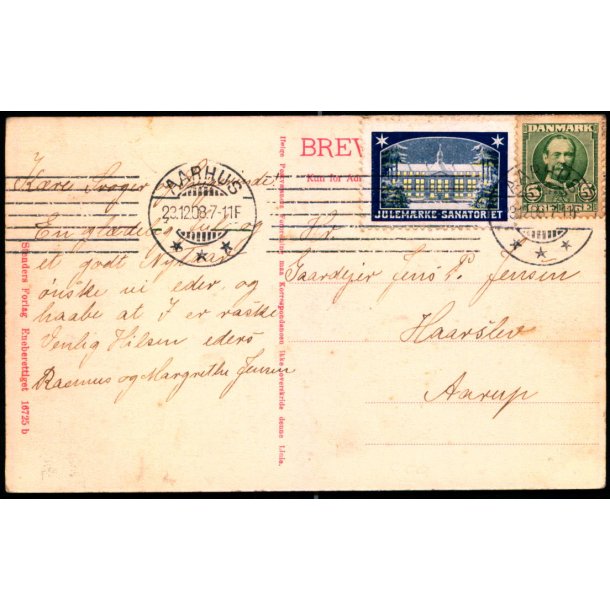 BREV
Kun for Adr
JULEMÆRKE SANATORIET
DANMARK
5 5
AARHUS
29.12.08.7-11F
Kære Svoger
En glædelig Jul og
et godt Nytaar
ønske vi eder og
haabe at I er raske
Venlig Hilsen eders
Rasmus og Margrethe Jensen
Hr.
Gaardejer Jens P. Jensen
Haarslev
Aarup
Stenders Forlag Eneberettiget 16725 b
man Korrespondancen ikke overskride denne Linie.